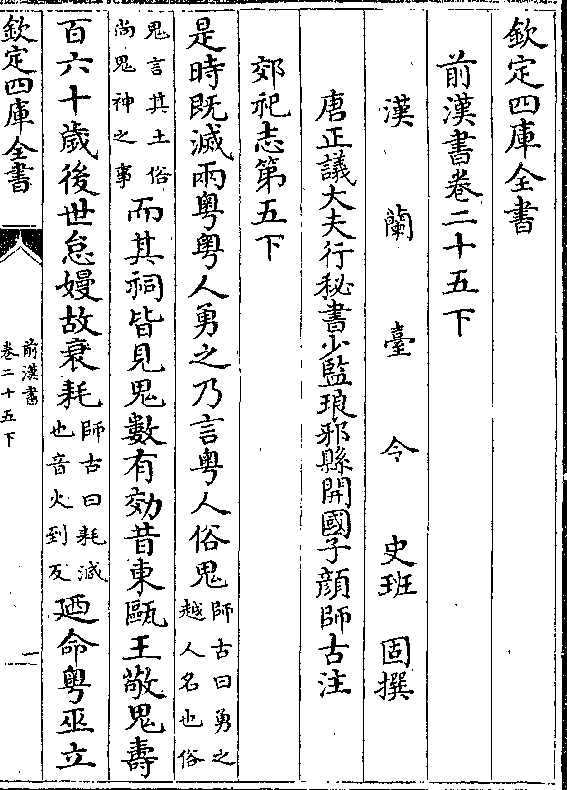 欽定四庫全書
前漢書卷二十五下
漢蘭臺令史班固撰
唐正議大夫行秘書少監琅邪縣開國子顔師古注
郊祀志第五下
是時既滅兩粤粤人勇之乃言粤人俗鬼師古曰勇之越人名也俗
鬼言其土俗尚鬼神之事而其祠皆見鬼數有効昔東甌王敬鬼壽
百六十歲後世怠嫚故衰耗師古曰耗減也音火到反廼命粤巫立
欽定四庫全書
前漢書
卷二十五下
一